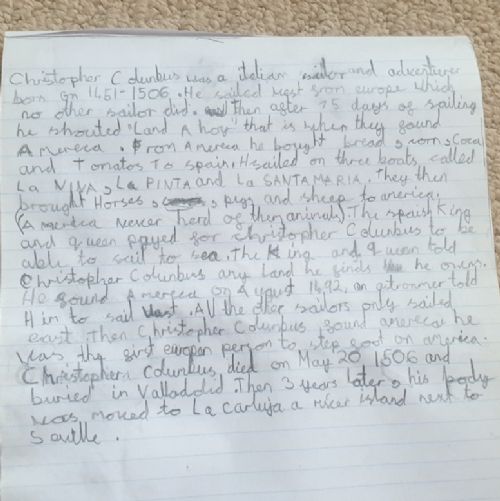 Christopher Columbus was a italian sailor and adventurer
born on 1451-1506. He sailed west from europe which
no other sailor did. Then after 75 days of sailing
he shouted "Land A hoy" that is when they found
Amereca. From Amereca he bought bread, corn, Coca
and Tomatos To spain. H sailed on three boats called
La NINA, La PINTA and La SANTAMARIA. They then
brought Horses, pigs and sheep to america.
(Amereca never herd of them animals) The spaish King
and queen payed for Christopher Columbus to be
able to sail to sea. The King and queen told
Christopher Columbus any Land he finds he owns.
He found Amereca on August 1492, an told
Him to sail West. All the other sailors only sailed
east Then Christopher Columbus found amereca he
was the first person to step foot on america.
Christopher Columbus died on May 20 1506 and
buried in Then 3 years later, his body
was moved to La a river island next to
Seville.